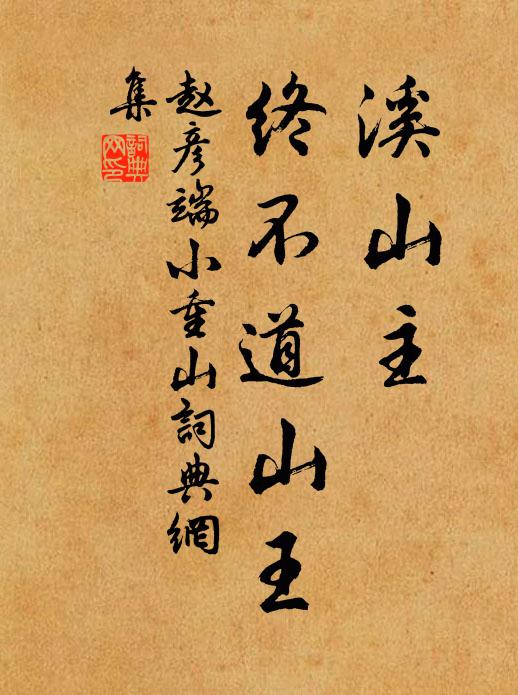 溪山主
终不道山王
赵彦端小重山詞典網
集
詞典
网印